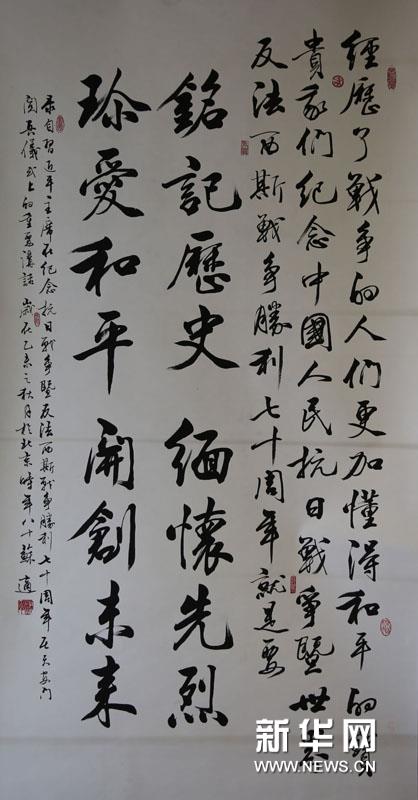 經歷了戰爭的人们更加懂得和平的寶
貴我们纪念中國人民抗日戰爭暨世界
反法西斯戰争勝利七十周年就是要
銘記歷史 緬懷先烈
珍愛和平 開創未来
录自習近平主席在纪念抗日战争暨反法西斯战争勝利七十周年在天安门
閲兵儀式上的重要講話 歲在乙未之秋月於北京時年八十蘇適
新华网
WWW.NEWS.CN